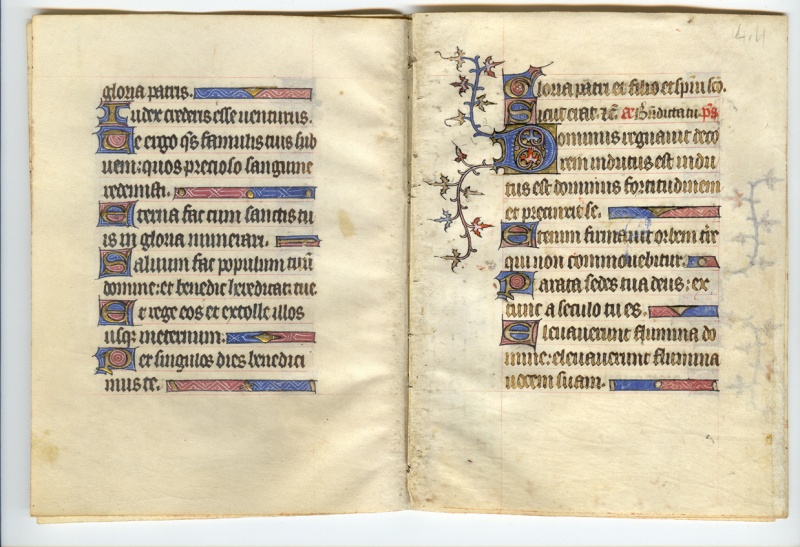 gloria patris.
Iudex crederis esse uenturus.
Te ergo qs famulis tuis sub
ueni: quos precioso sanguine
redemisti.
Eterna fac cum sanctis tu
is in gloria munerari.
Saluum fac populum tuū
domine: et benedic hereditati tue.
Et rege eos et extolle illos
usq; in eternum:
Per singulos dies benedici
mus te.
4.11
Gloria patri et filio et spiui sc̄o.
Sicut erat. &c̄. a͂. Bn̄dicta tu. p̄s
Dominus regnauit deco
rem indutus est indu
tus est dominus fortitudinem
et precinxit se.
Etenim firmauit orbem t̄re
qui non commouebitur.
Parata sedes tua deus: ex
tunc a seculo tu es.
Eleuauerunt flumina do
mine: eleuauerunt flumina
uocem suam.